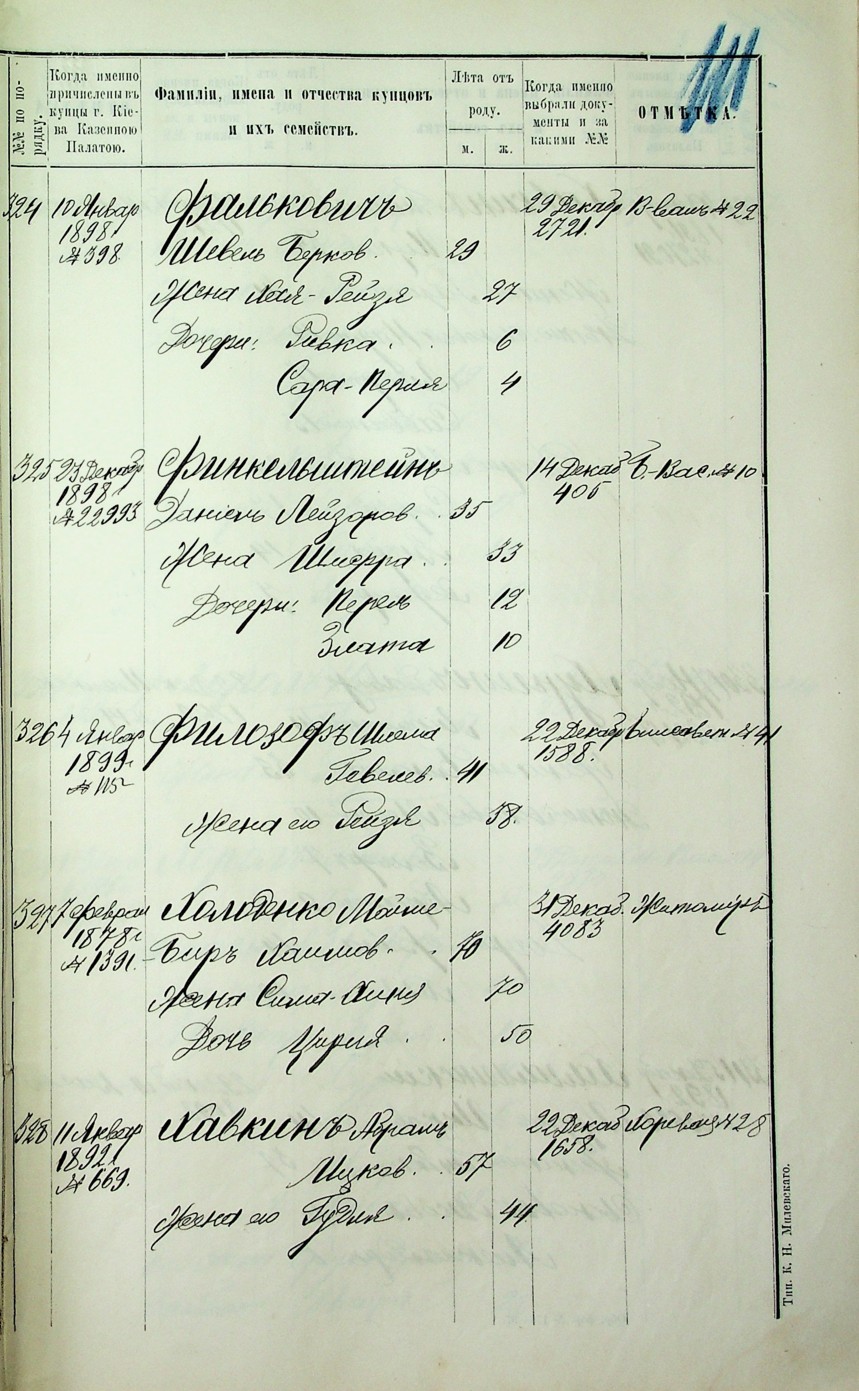 111
№№ по по-
рядку.
Когда именно
причислены въ
купцы г. Кіе-
ва Казенною
Палатою.
Фамиліи, имена и отчества купцовъ
и ихъ семействъ.
Лѣта отъ
роду.
м. ж.
Когда именно
выбрали доку-
менты и за
какими №№
ОТМѢТКА.
324 10 Январ Фальковичъ 29 Декабр В-Васил № 22
1898 2721.
№ 398 Шевель Берков. 29
Жена Хая-Рейзя 27
Дочери: Ривка 6
Сара-Перля 4
325 23 Декабр Финкельштейнъ 14 Декаб Б.-Вас. № 10
1898 405
№ 22993 Даніель Лейзоров. 35
Жена Шифра 33
Дочери: Перель 12
Злата 10
326 4 Январ Философъ Шлема 22 Декабр Елисавет № 41
1899 1588.
№ 115 Гевелев. 41
Жена его Рейзя 38.
327 7 Феврал Холоденко Мойше- 31 Декаб. Житоміръ
1878 4083
№ 1391. Беръ Хаимов. 70
Жена Сима- 70
Дочь Цирля 50
328 11 Январ Хавкинъ Абрамъ 22 Декаб Хоревая № 28
1892 1658.
№ 669. Ицков. 57
Жена его Гудля 44
Тип. К. Н. Милевскаго.